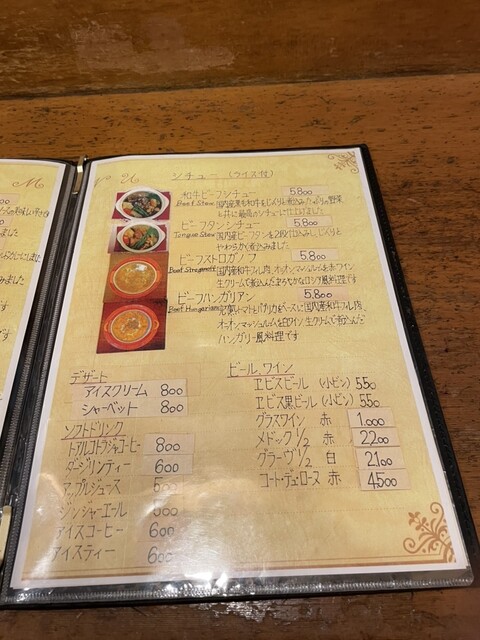 シチュー (ライス付)
和牛ビーフシチュー 5.800
Beef Stew 国産黒毛和牛をじっくり煮込みたっぷりの野菜
と共に最高のシチューに仕上げました
ビーフタンシチュー 5.800
Tongue Stew 国産ビーフタンを2段仕込みし、じっくりと
やわらかく煮込みました
ビーフストロガノフ 5.800
Beef Stroganoff 国産和牛フィレ肉、オニオンマッシュルームを赤ワイン
生クリームで煮込んだまろやかなロシア風料理です
ビーフハンガリアン 5.800
Beef Hungarian 完熟トマトとパプリカをベースに国産和牛フィレ肉、
オニオンマッシュルームを白ワイン生クリームで煮込んだ
ハンガリー風料理です
デザート
アイスクリーム 800
シャーベット 800
ソフトドリンク
トアルコトラジャコーヒー 800
ダージリンティー 600
アップルジュース
ジンジャーエール
アイスコーヒー 600
アイスティー 600
ビール、ワイン
エビスビール (小ビン) 550
エビス黒ビール (小ビン) 550
グラスワイン 赤 1.000
メドック1/2 赤 2200
グラーヴ1/2 白 2100
コート・デュ・ローヌ 赤 4500